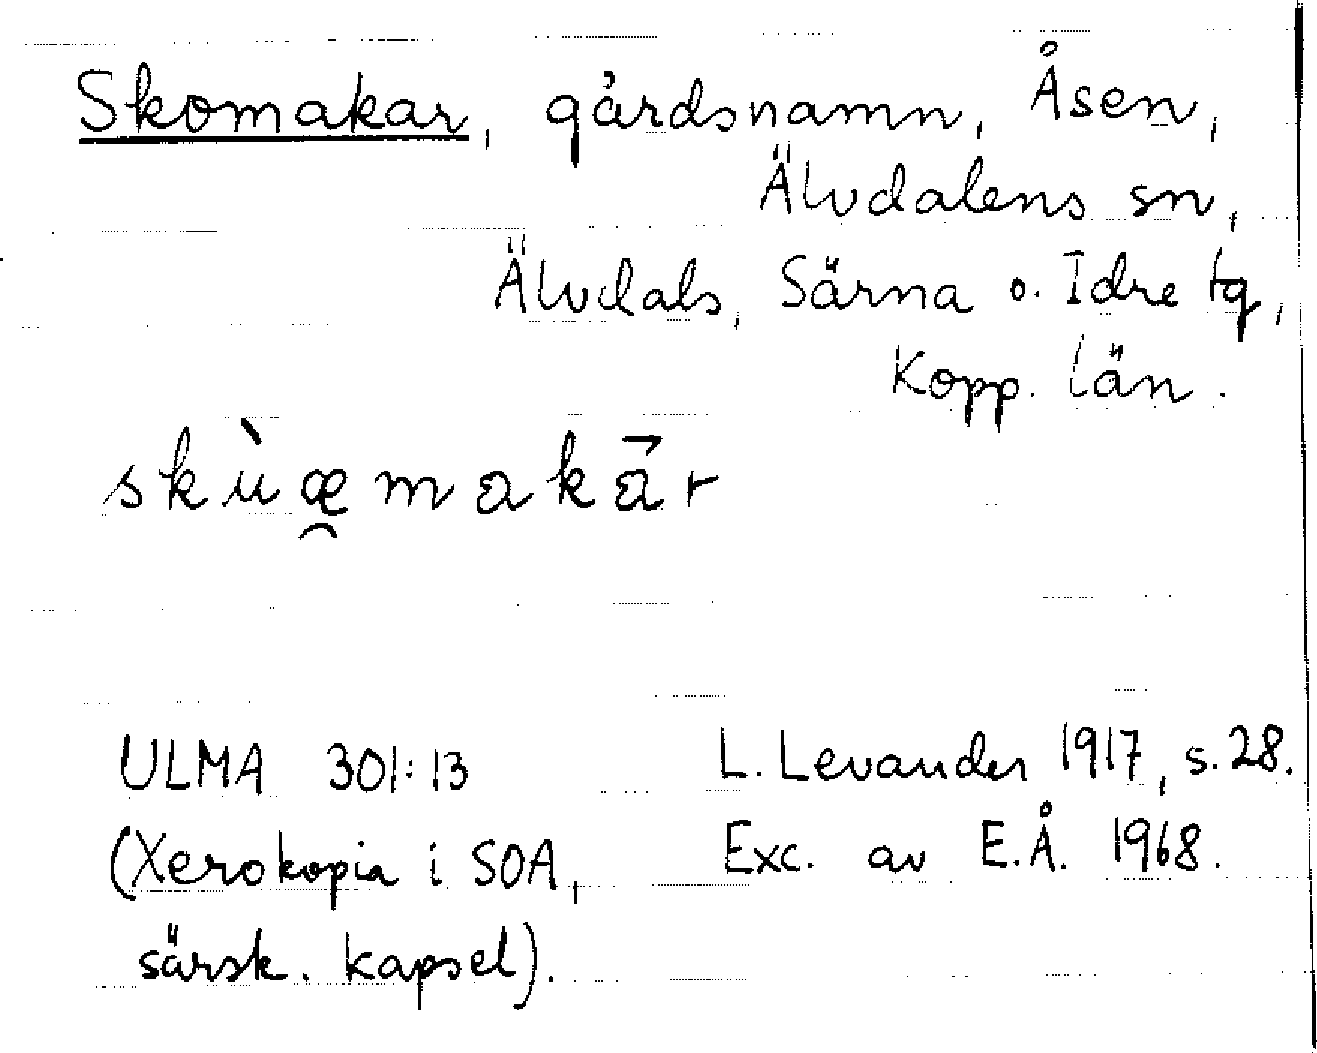 Skomakar, gårdsnamn, Åsen,
Älvdalens sn,
Älvdals, Särna o. Idre tg,
Kopp. län.
skùœ̯makār
ULMA 301:13
(Xerokopia i SOA,
särsk. kapsel).
L. Levander 1917, s. 28.
Exc. av E.Å. 1968.